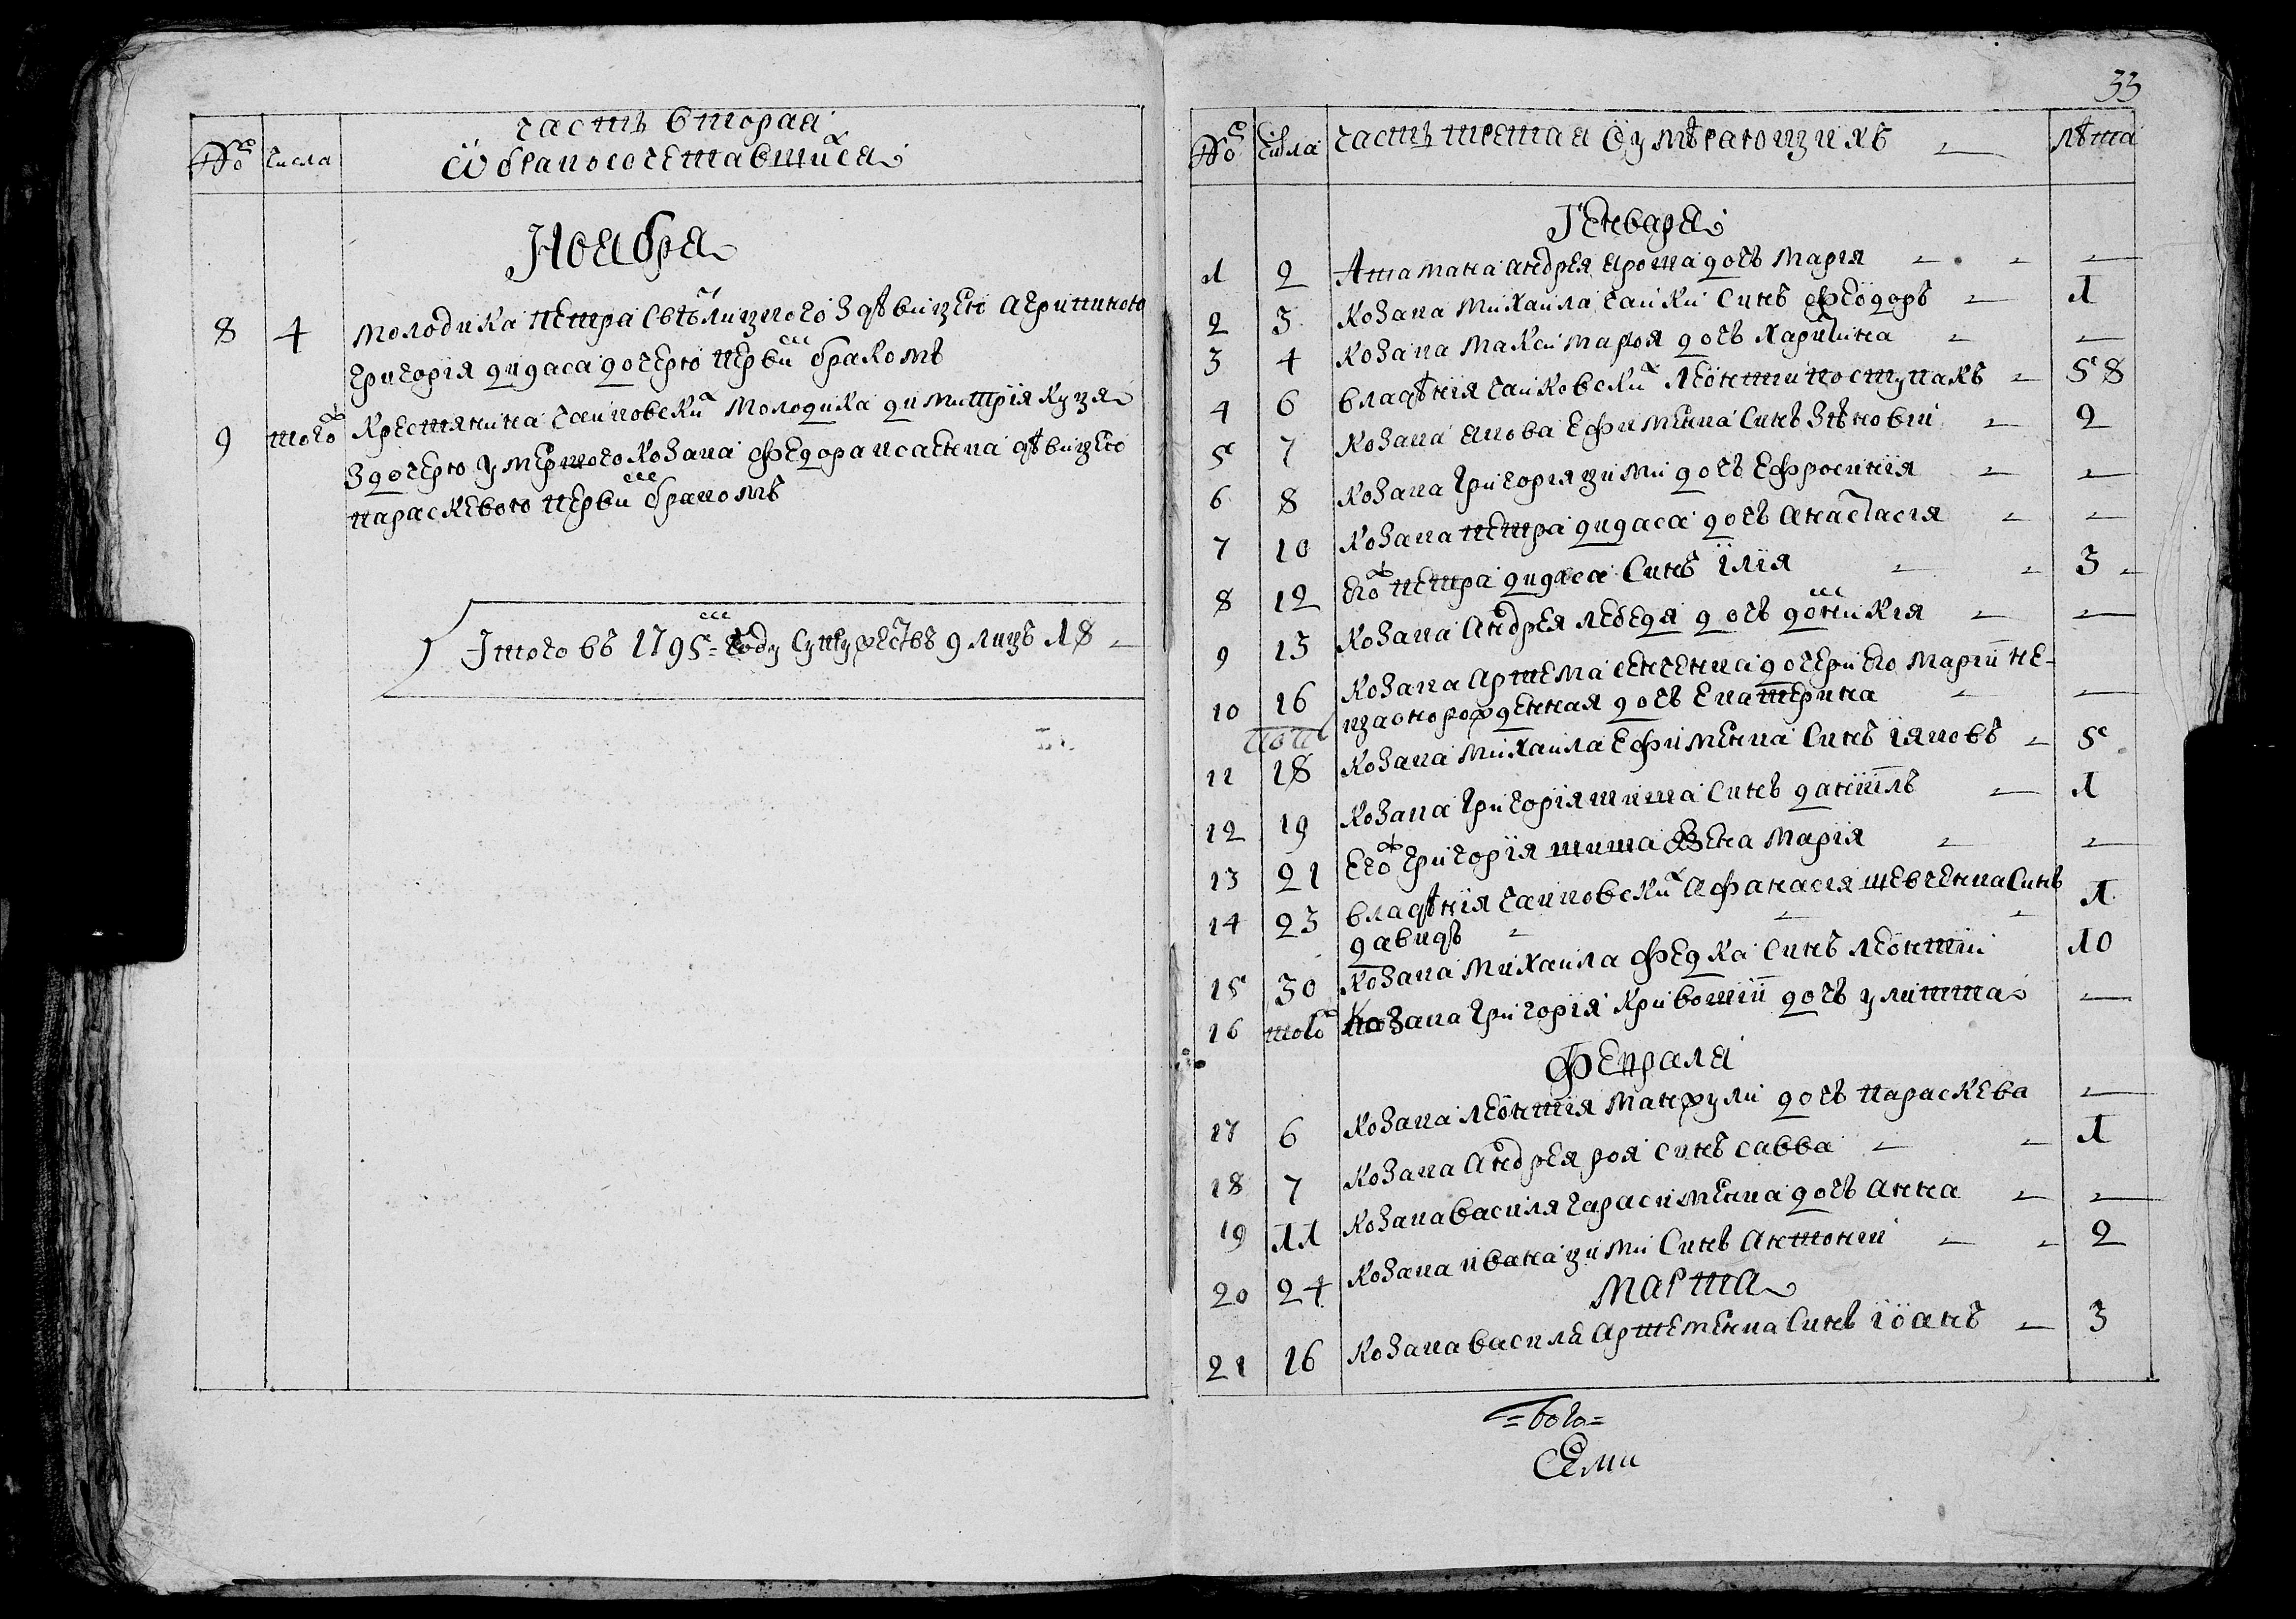 часть вторая
№ числа ѿ бракосочетавшихся
Ноября
8 4 молодика петра свѣтлицного З дѣвицею агрипиною
григорія дидаса дочерю первим бракомъ
9 того крестянина чайковских молодика димитрія кузя
З дочерю умершого козака федора исаенка дѣвицею
параскевою первим бракомъ
Итого въ 1795 году супружествъ 9 лицъ 18
33
№ числа часть третая ѿ умѣраюющихъ лѣта
Генваря
1 2 Атамана андрея яроша дочь марія
2 3 козака михаила чайки синъ феодоръ 1
3 4 козака максима роя дочь харитина
4 6 владѣнія чайковских леонтий поступакъ 58
5 7 козака якова ефименка синъ Зѣновий 2
6 8 козака григорія зими дочь ефросинія
7 10 козака петра дидаса дочь анастасія
8 12 его ж петра дидаса синъ илія 3
9 13 козака андрея лебедя дочь домникія
10 16 козака артема сенченка дочери его марии не-
законорожденная дочь екатерина
11 18 козака михаила ефименка синъ іяковъ 5
12 19 козака григорія шиша синъ даниилъ 1
13 21 его ж григорія шиша жена марія
14 23 владѣнія чайковских афанасія шевченка синъ 1
давидъ
15 30 козака михаила федка синъ леонтий 10
16 того козака григорія кривошии дочь улита
февраля
17 6 козака леонтія манжули дочь параскева
18 7 козака андрея роя синъ савва 1
19 11 козака василя гарасименка дочь анна
20 24 козака ивана зими синъ антоний 2
марта
21 16 козака василя артеменка синъ іоанъ 3